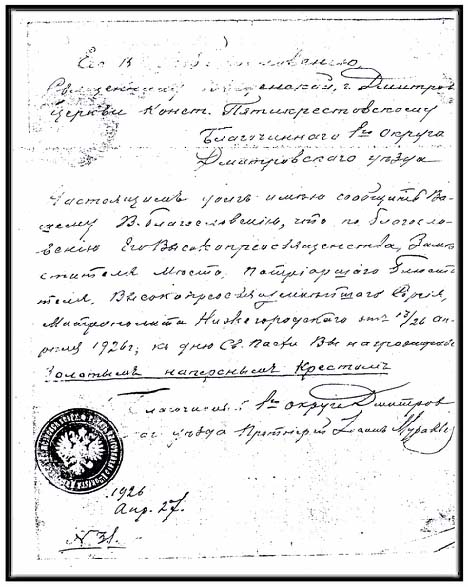 Его В благословению
Священнику г. Дмитров
Церкви Конст. Пятикрестовскому
Благочинного 1го округа
Дмитровского уѣзда
Настоящимъ долгъ имѣю сообщить Ва-
шему В.благословенію, что по благосло-
венію Его Высокопреосвященства, Замѣ
стителя Мѣсто. Патріаршаго Блюсти
теля, Высокопреосвященнѣйшаго Сергія,
Митрополита Нижегородскаго отъ 13/26 ап-
рѣля 1926г; ко дню Св. Пасхи Вы награждены
Золотымъ наперснымъ Крестомъ
Благочинный 1го округа Дмитров
ск. уѣзда Протоіерей Іоаннъ Муравье
1926
Апр. 27.
№ 38.